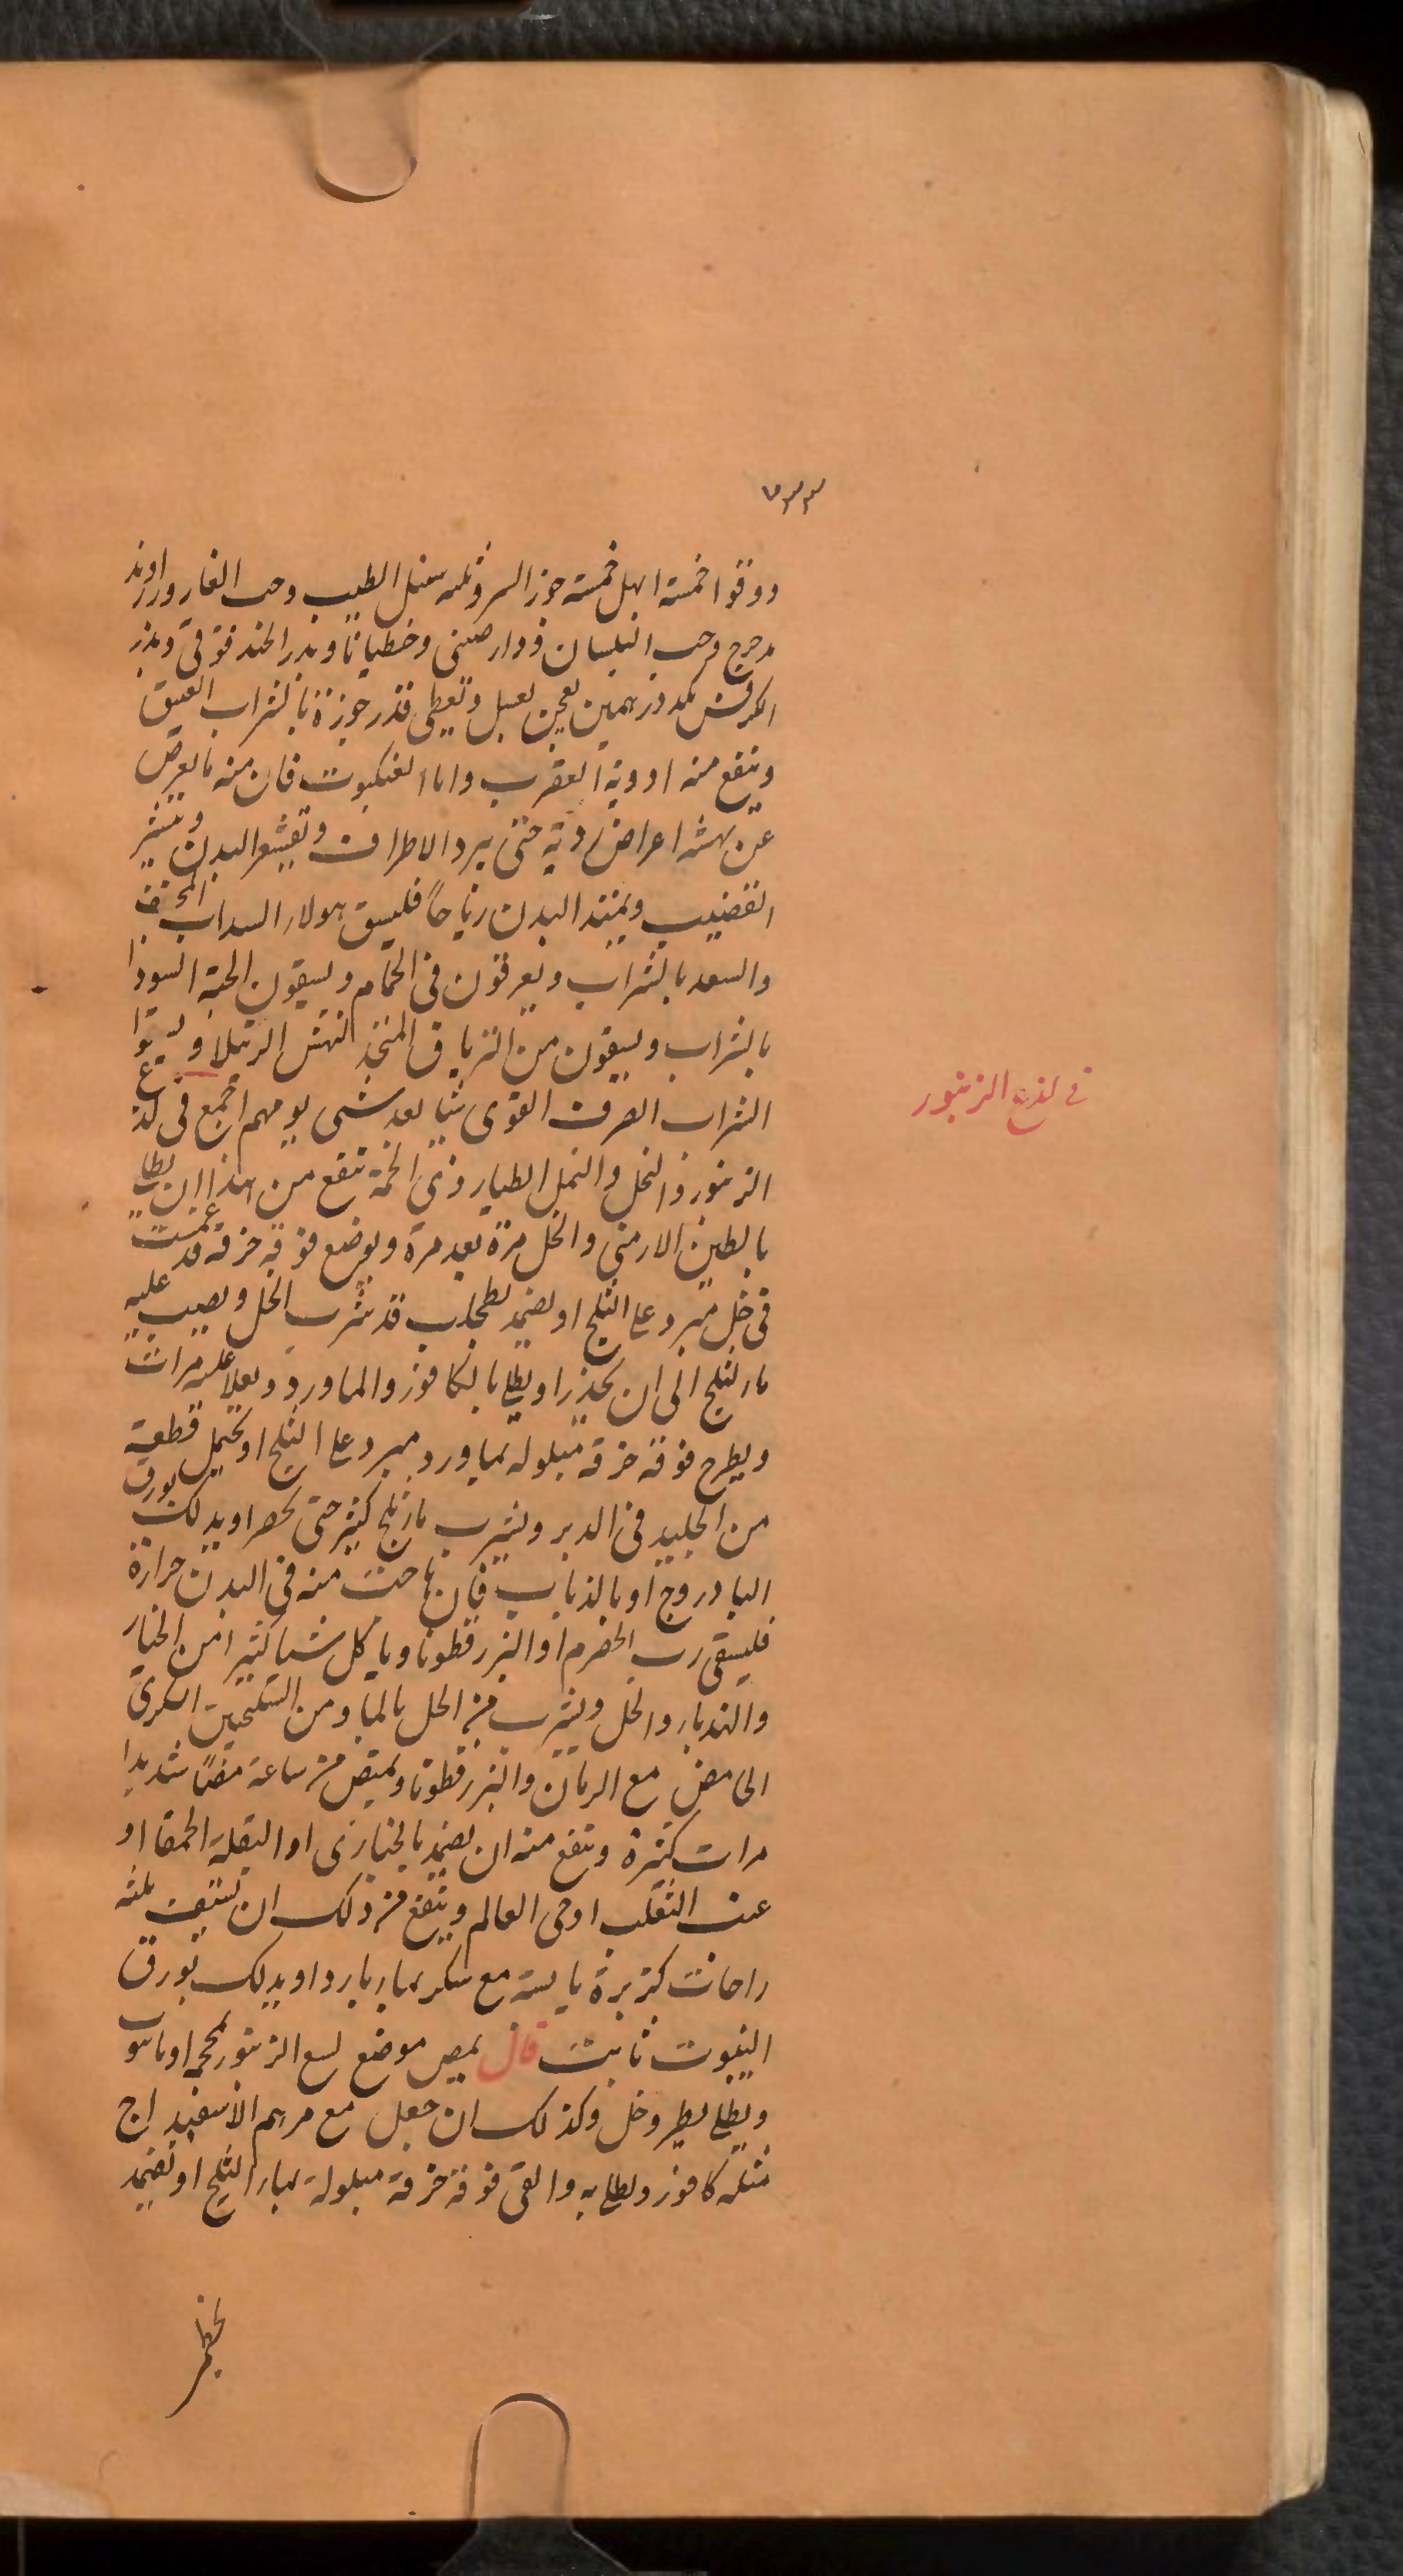 ٧٣٣
ودوقوا خمسة ابهل خمسة جوز السرو ثلثه سنبل الطيب وحب الغار وزراوند
مدحرج وحب البلسان ودارصينى وجنطيانا وبزر الحندقوقى وبزر
الكرفس مكد درهمين يعجن بعسل وتعطى قدر جوزة بالشراب العتيق
وينفع منه ادوية العقرب واما العنكبوت فان منه ما يعرض
عن نهشه اعراض ردية حتى يبرد الاطراف وتقشعر البدن وينتشر
القضيب ويمتد البدن رياحاً فليسق هولاء السداب المجفف
والسعد بالشراب ويعرقون فى الحمام ويسقون الحبة السودا
بالشراب ويسقون من الترياق المتخذ لنهش الرتيلا
الشراب الصرف القوى شيا بعد شى يومهم اجمع فى لذع
الزنبور والنحل والنمل الطيار وذى الحمة ينفع من هذا ان يطلى
بالطين الارمنى والخل مرة بعد مرة ويوضع فوقه خرقة قد غمست
فى خل مبرد على الثلج او يضمد بطحلب قد شرب الخل ويصب عليه
ماء الثلج الى ان يخدر او يطلى بالكافور والماورد ويعلا عليه مرات
ويطرح فوقه خرقة مبلولة بماورد مبرد على الثلج او يحتمل قطعة
من الجليد فى الدبر ويشرب ماء ثلج كثير حتى يحصر او يدلك بورق
البادروج او بالذباب فان هاجت منه فى البدن حرارة
فليسقى رب الحصرم او البزرقطونا وياكل شيا كثيرا من الخيار
والهندباء والخل ويشرب من الخل بالماء ومن السكنجبين السكرى
الحامض مع الرمان والبزرقطونا ويمتص من ساعة مصّاً شديدا
مرات كثيرة وينفع منه ان يضمد بالخبازى او البقلة الحمقا او
عنب الثعلب او حى العالم وينفع من ذلك ان يستف ثلثه
راحات كزبرة يابسة مع سكر بماء بارد او يدلك بورق
الينبوت ثابت قال يمص موضع لسع الزنبور بمحجمه او بانبوب
ويطلى بطين وخل وكذلك ان جعل مع مرهم الاسفيداج
مثله كافور وطلى به والقى فوقه خرقة مبلولة بماء الثلج او تضمد
فى لذع الزنبور